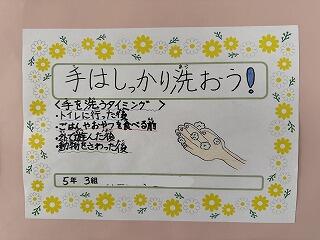 手はしっかり洗おう!
<手を洗うタイミング>
・トイレに行った後
・ごはんやおやつを食べる前
・外で遊んだ後
・動物をさわった後
5年 3組